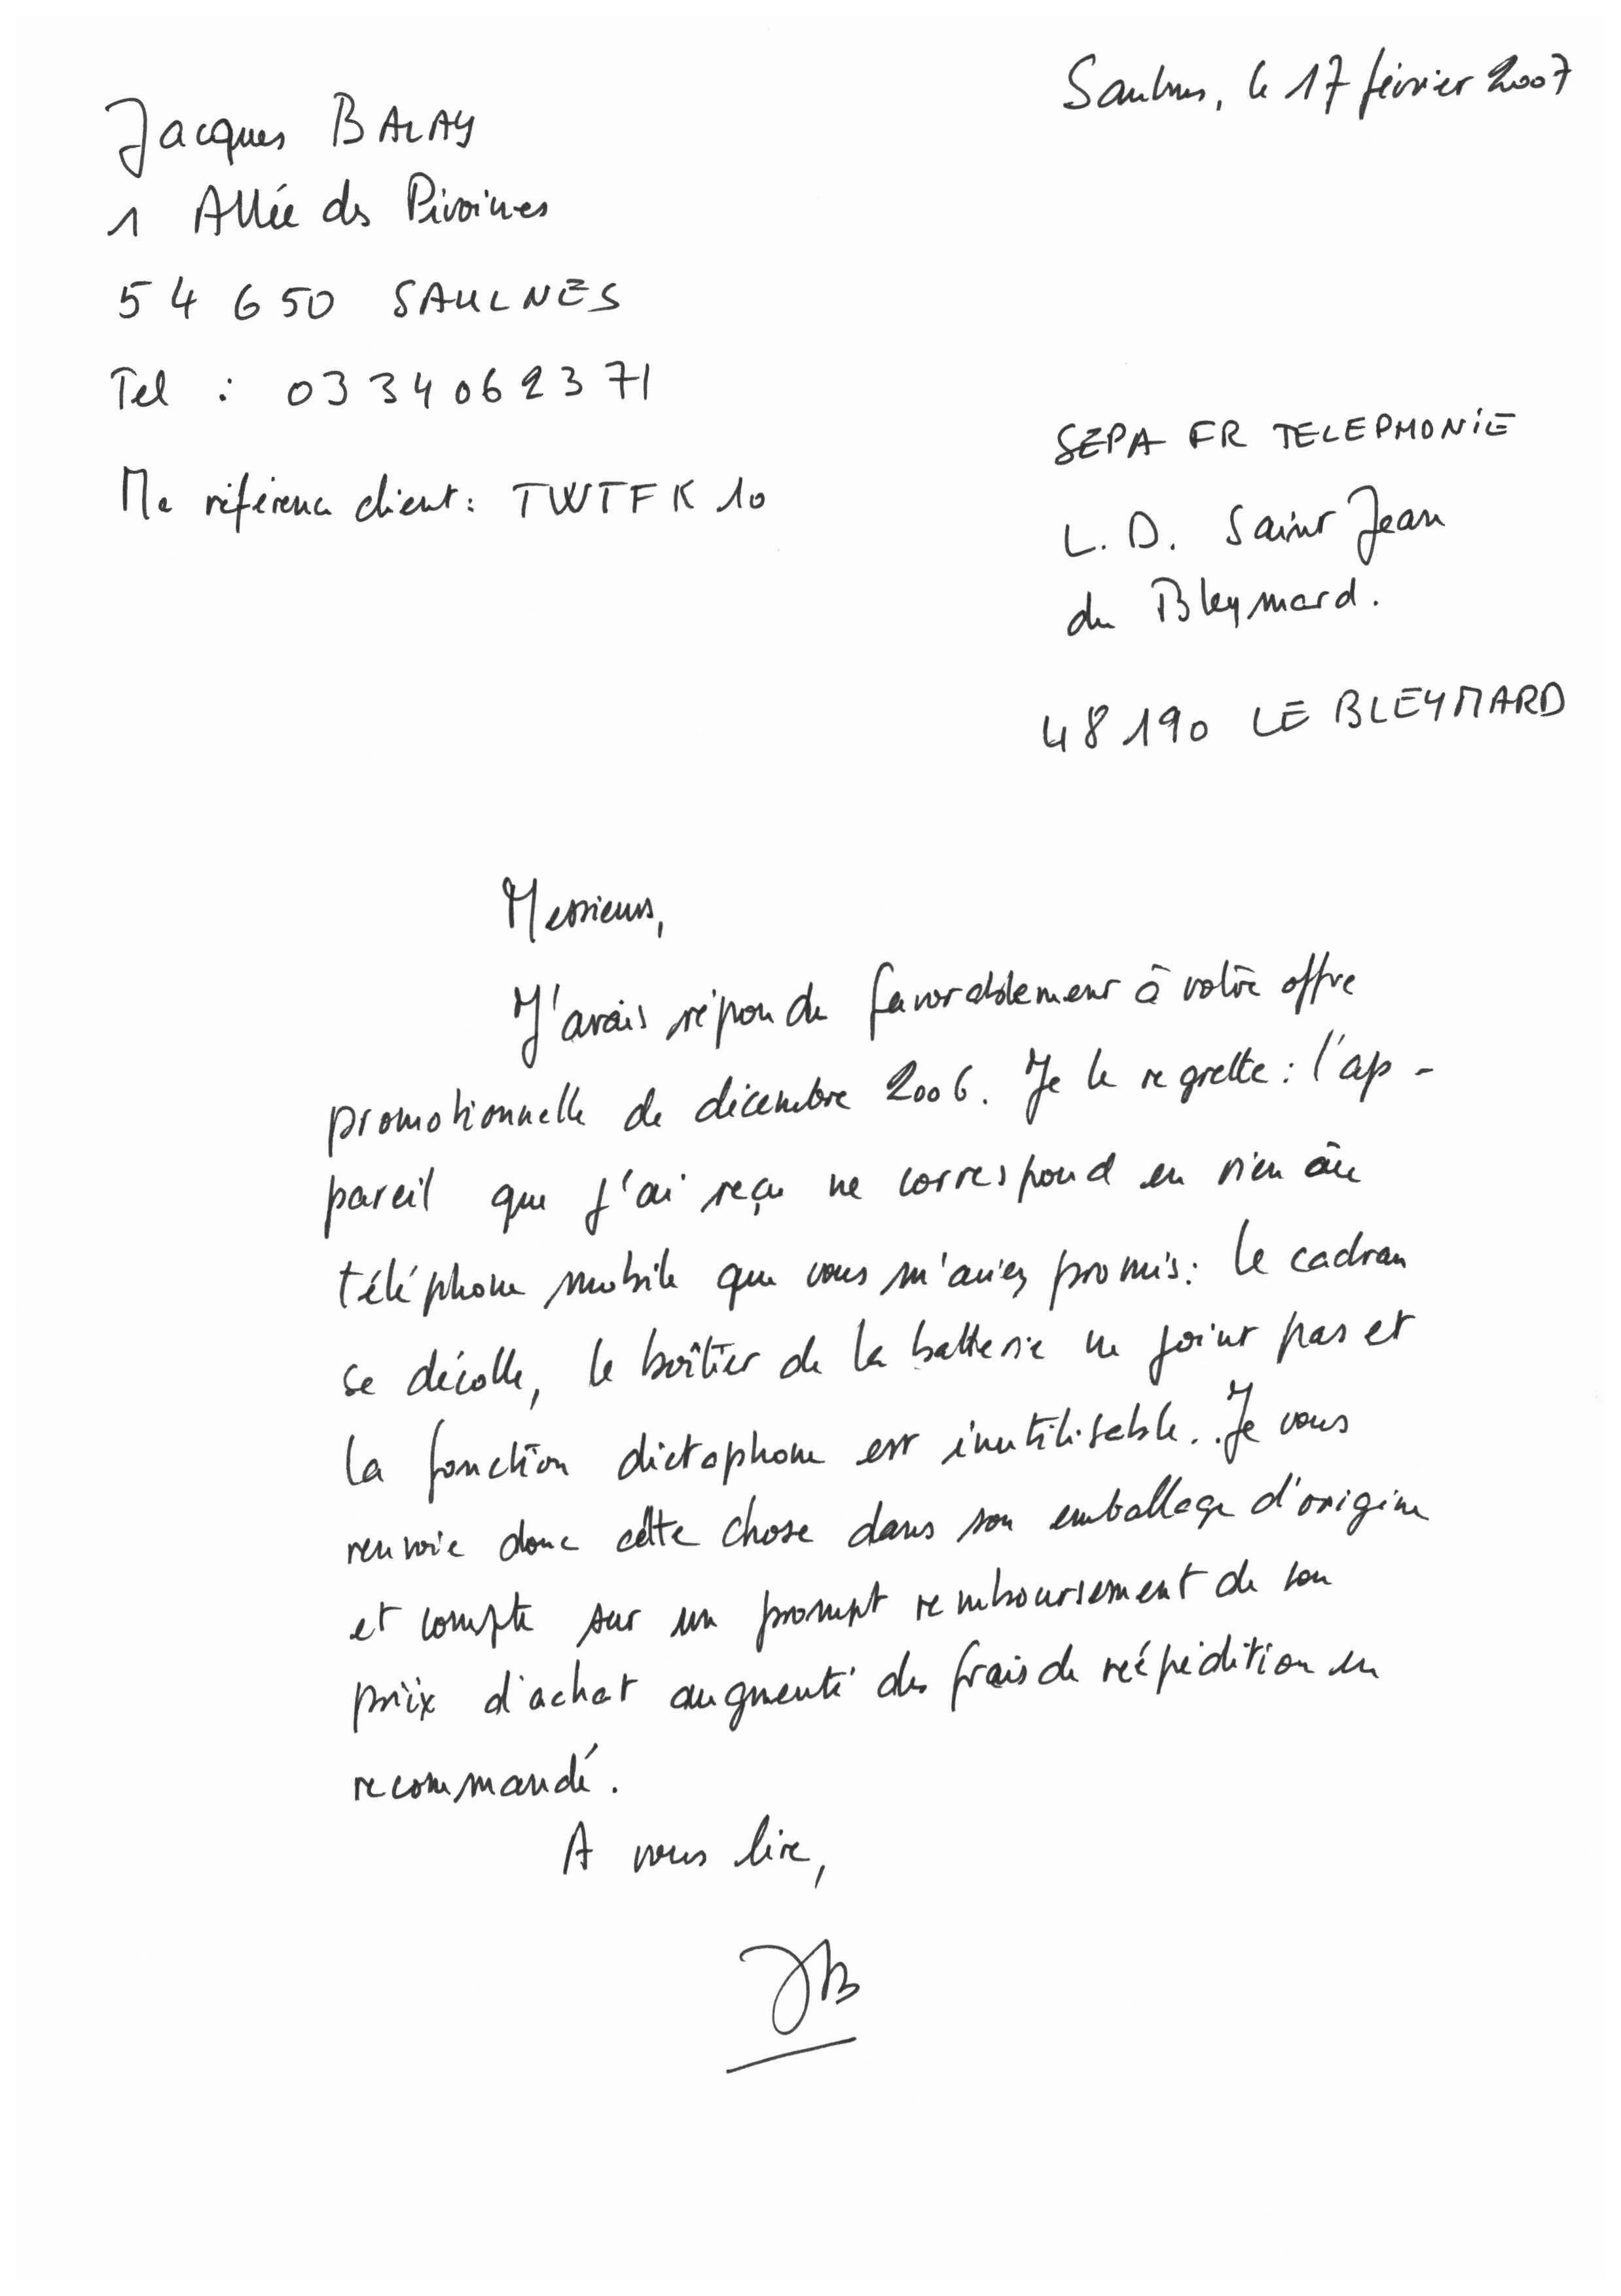 Saulnes, le 17 février 2007
Jacques BALAY
1 Allée des Pivoines
54 650 SAULNES
Tel : 03 34 06 23 71
Ma référence client : TWTFK 10
SEPA FR TELEPHONIE
L. D. Saint Jean
du Bleymard.
48 190 LE BLEYMARD
Messieurs,
J'avais répondu favorablement à votre offre
promotionnelle de décembre 2006. Je le regrette : l'ap-
pareil que j'ai reçu ne correspond en rien au
téléphone mobile que vous m'aviez promis : le cadran
se décolle, le boîtier de la batterie ne joint pas et
la fonction dictaphone est inutilisable. Je vous
renvoie donc cette chose dans son emballage d'origine
et compte sur un prompt remboursement de son
prix d'achat augmenté des frais de réépédition en
recommandé.
A vous lire,
JB